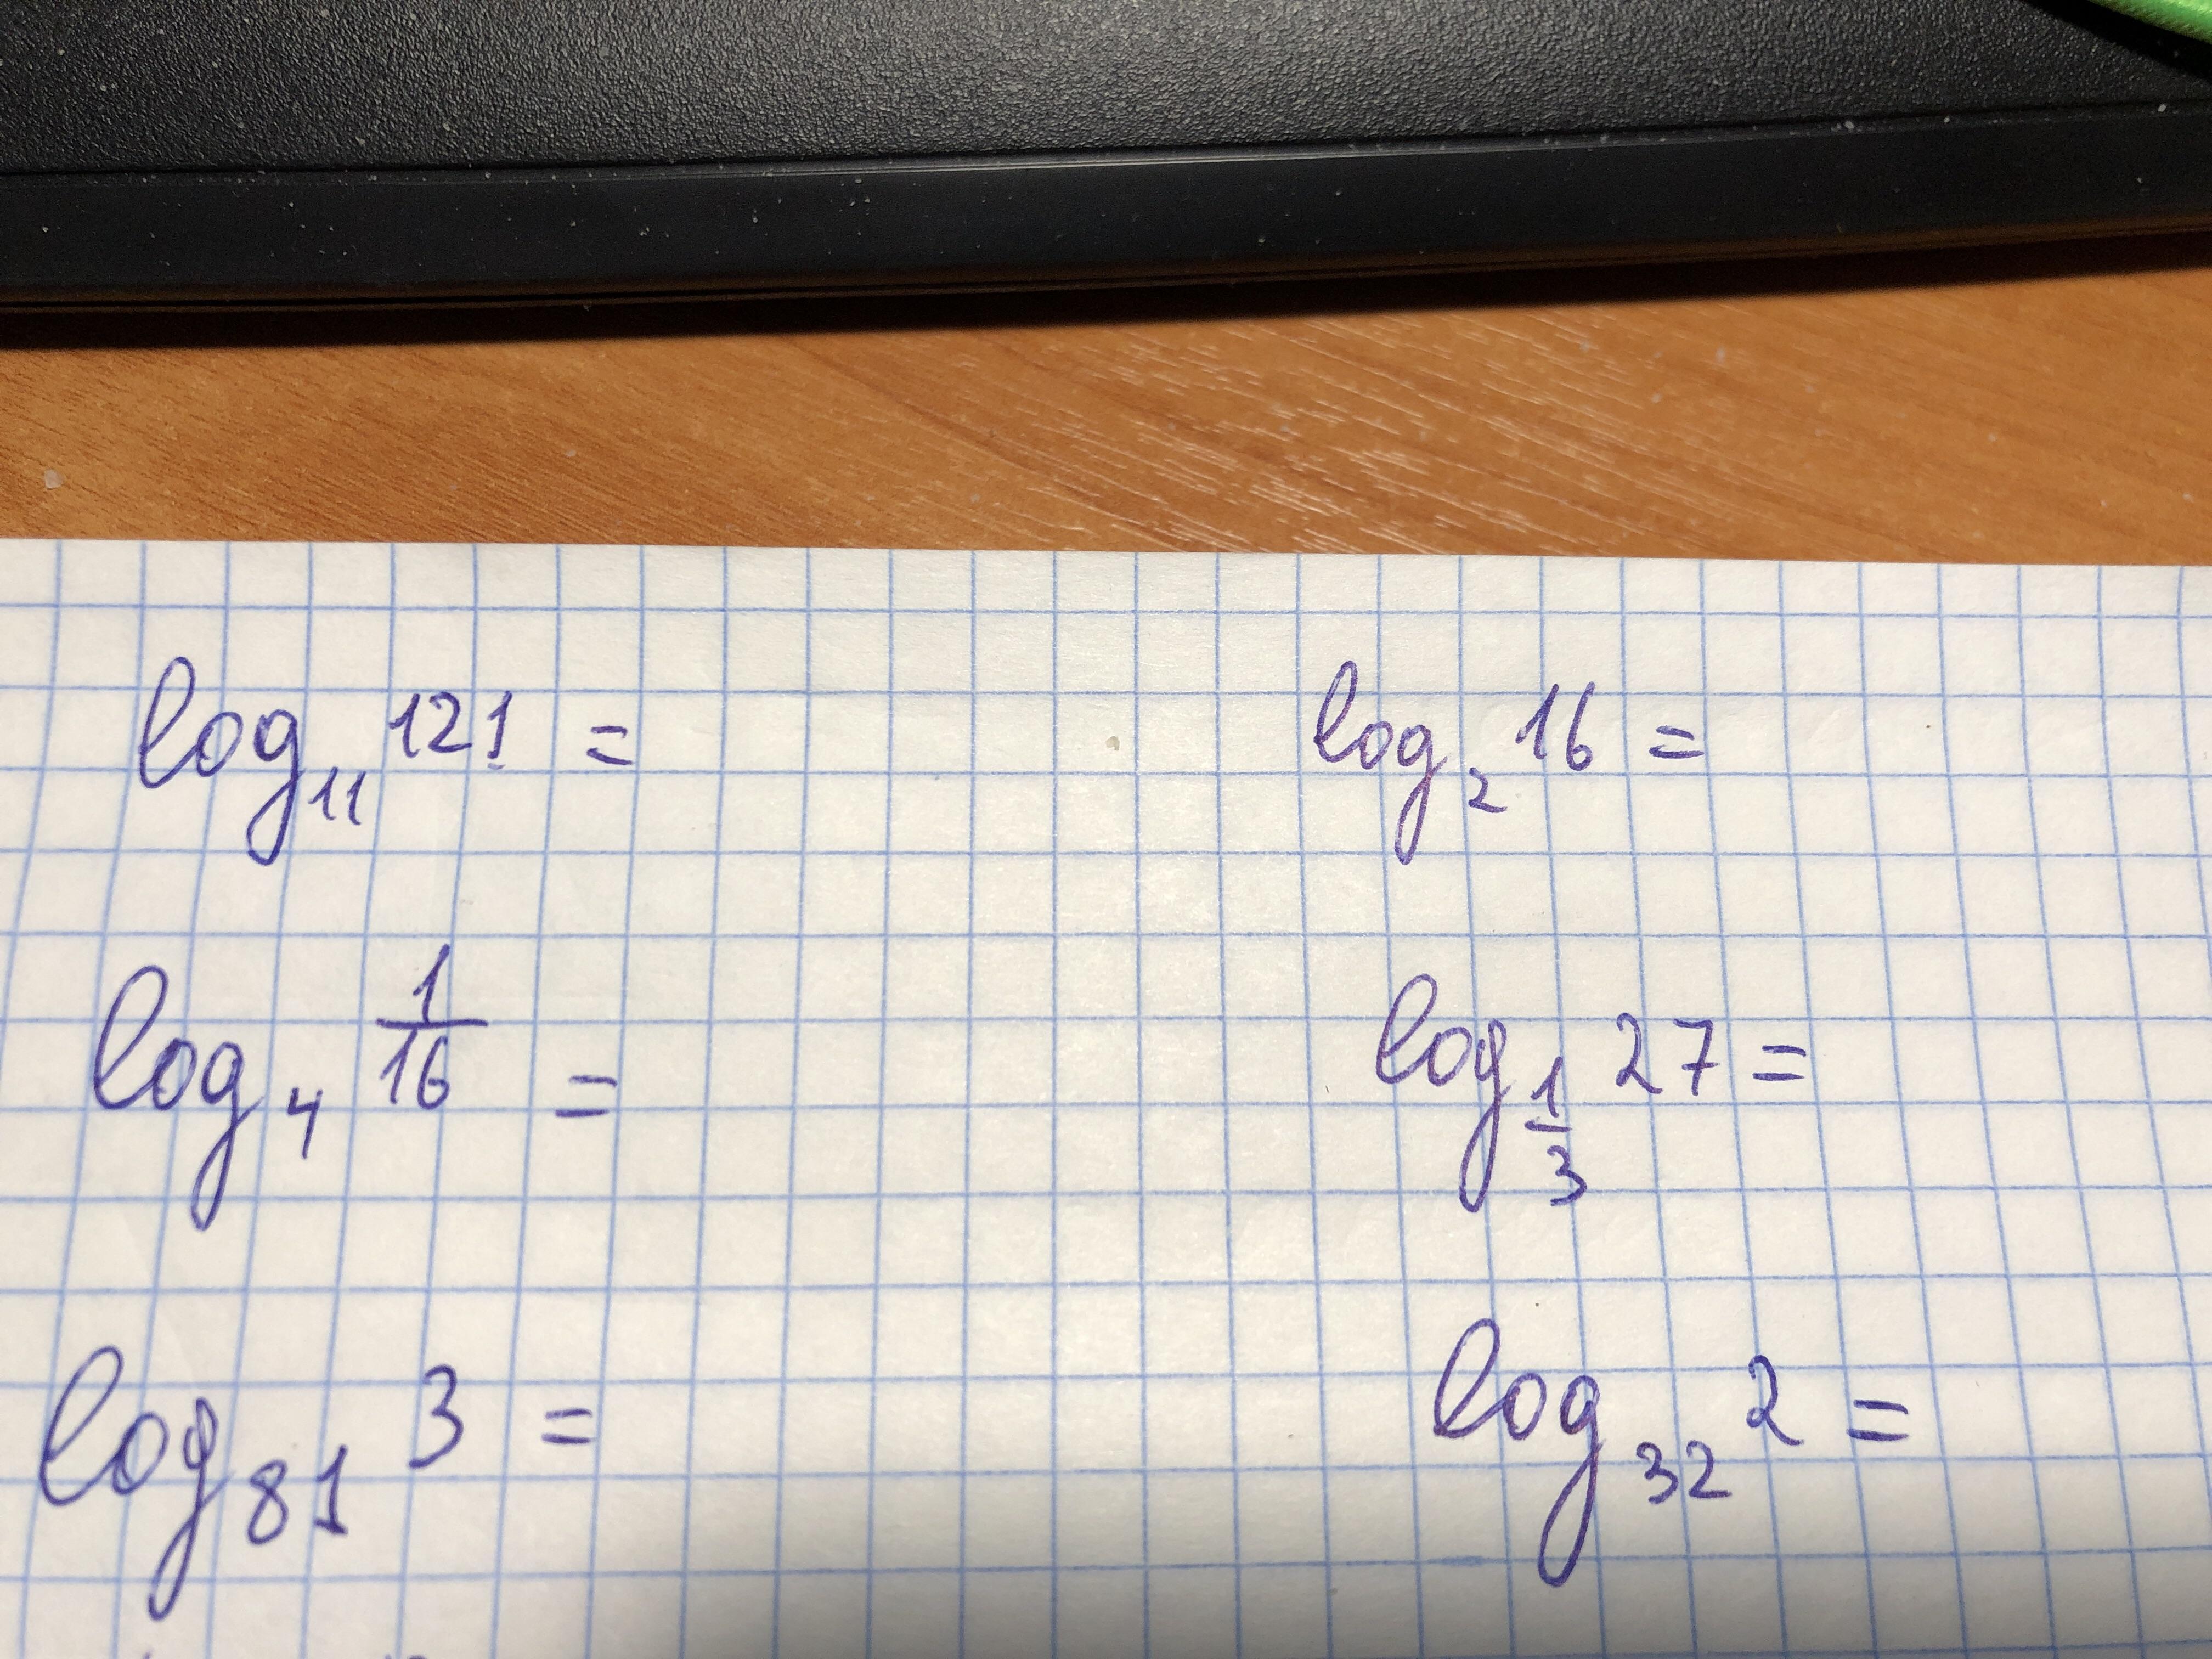 log₁₁ 121 = log₂ 16 =
log₄ 1/16 = log₁/₃ 27 =
log₈₁ 3 = log₃₂ 2 =